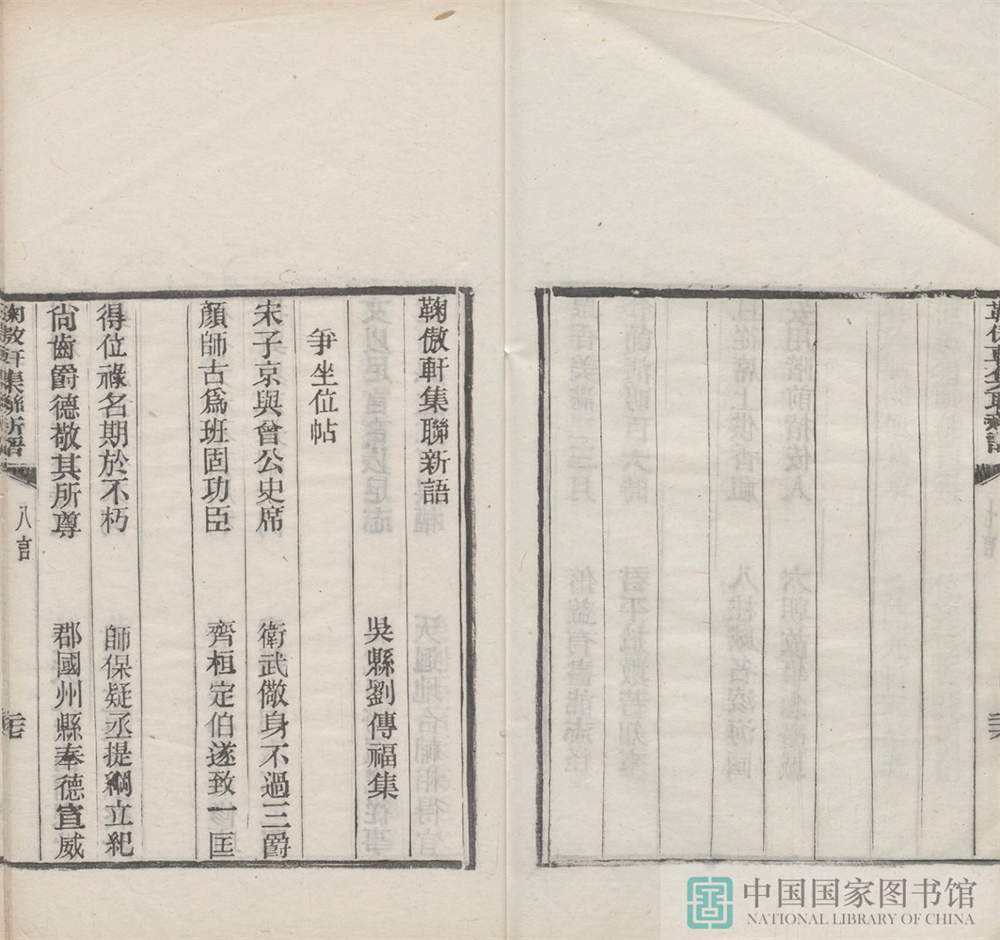 鞠傲軒集聯新語
吳縣劉傳福集
爭坐位帖
宋子京與曾公史席 衛武儆身不過三爵
顏師古爲班固功臣 齊桓定伯遂致一匡
得位祿名期於不朽 師保疑丞提綱立紀
尙齒爵德敬其所尊 郡國州縣奉德宣威
八言
中国国家图书馆
NATIONAL LIBRARY OF CHINA